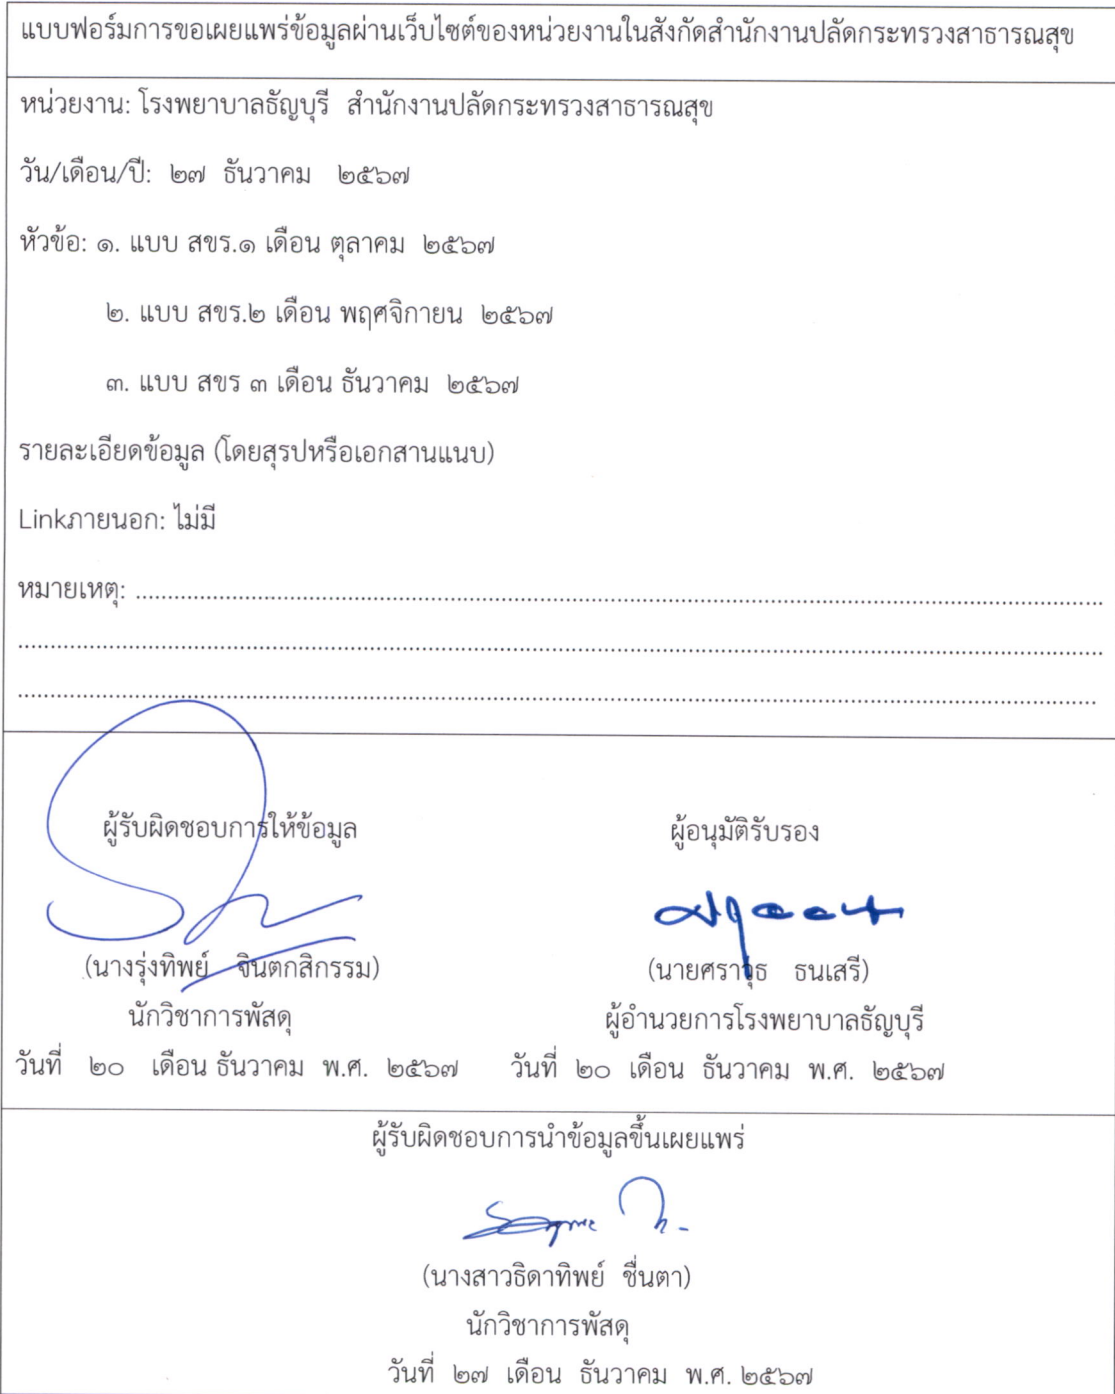 แบบฟอร์มการขอเผยแพร่ข้อมูลผ่านเว็บไซต์ของหน่วยงานในสังกัดสำนักงานปลัดกระทรวงสาธารณสุข
หน่วยงาน: โรงพยาบาลธัญบุรี สำนักงานปลัดกระทรวงสาธารณสุข
วัน/เดือน/ปี: ๒๗ ธันวาคม ๒๕๖๗
หัวข้อ: ๑. แบบ สขร.๑ เดือน ตุลาคม ๒๕๖๗
๒. แบบ สขร.๒ เดือน พฤศจิกายน ๒๕๖๗
๓. แบบ สขร ๓ เดือน ธันวาคม ๒๕๖๗
รายละเอียดข้อมูล (โดยสุรปหรือเอกสานแนบ)
Linkภายนอก: ไม่มี
หมายเหตุ: ........................................................................
........................................................................
........................................................................
ผู้รับผิดชอบการให้ข้อมูล ผู้อนุมัติรับรอง
(นางรุ่งทิพย์ จินตกสิกรรม) (นายศราวุธ ธนเสรี)
นักวิชาการพัสดุ ผู้อำนวยการโรงพยาบาลธัญบุรี
วันที่ ๒๐ เดือน ธันวาคม พ.ศ. ๒๕๖๗ วันที่ ๒๐ เดือน ธันวาคม พ.ศ. ๒๕๖๗
ผู้รับผิดชอบการนำข้อมูลขึ้นเผยแพร่
(นางสาวธิดาทิพย์ ชื่นตา)
นักวิชาการพัสดุ
วันที่ ๒๗ เดือน ธันวาคม พ.ศ. ๒๕๖๗